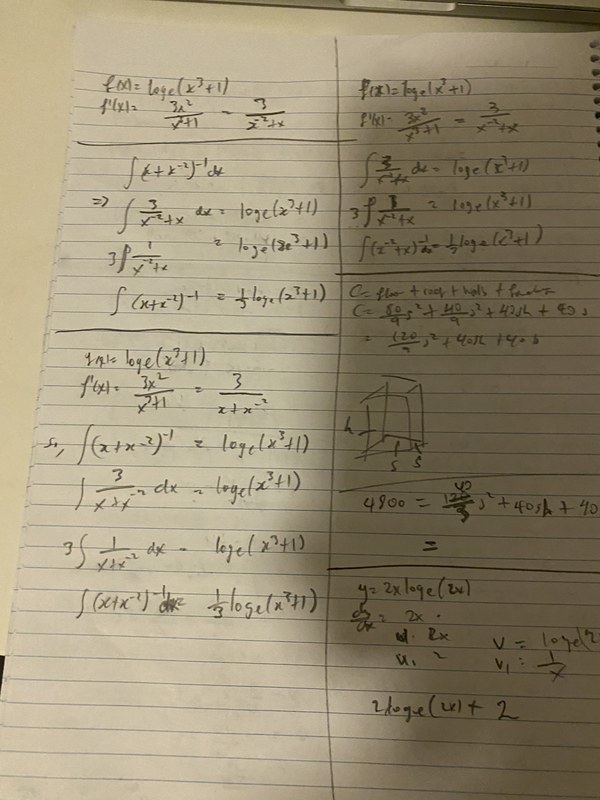 f(x)= loge(x³+1)
f'(x)= 3x²/x³+1 = 3/x⁻²+x
∫(x+x⁻²)⁻¹dx
=> ∫ 3/x⁻²+x dx = loge(x³+1)
3∫ 1/x⁻²+x = loge(x³+1)
∫(x+x⁻²)⁻¹ = 1/3 loge(x³+1)
f(x)= loge(x³+1)
f'(x)= 3x²/x³+1 = 3/x+x⁻²
so, ∫(x+x⁻²)⁻¹ = loge(x³+1)
∫ 3/x+x⁻² dx = loge(x³+1)
3∫ 1/x+x⁻² dx = loge(x³+1)
∫(x+x⁻²)⁻¹dx= 1/3 loge(x³+1)
f(x)= loge(x³+1)
f'(x)= 3x²/x³+1 = 3/x⁻²+x
∫ 3/x⁻²+x dx = loge(x³+1)
3∫ 1/x⁻²+x = loge(x³+1)
∫(x⁻²+x)⁻¹ = 1/3 loge(x³+1)
C= floor + roof + walls +
C= 80/9 s² + 40/9 s² + 40sh + 40s
= 120/9 s² + 40sh + 40s
h
s s
4800 = 40/3 s² + 40sh + 40
=
y= 2x loge(2x)
dy/dx = 2x ·
u= 2x v = loge(2
u, = 2 v, = 1/x
2loge(2x) + 2